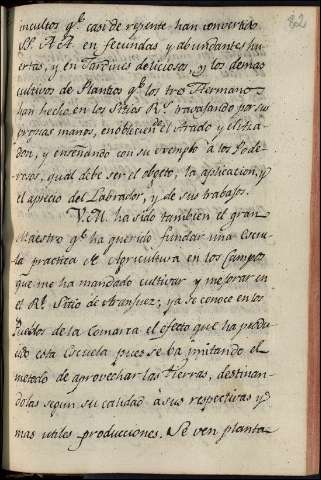 82
incultos q.e casi de repente han convertido
SS. A A. en fecundas y abundantes hu
ertas, y en Jardines deliciosos, y los demas
cultivos de Plantios q.e los tres Hermanos
han hecho en los Sitios R.s travajando por sus
propias manos, enobleciendo el Arado y el Aza
don, y enseñando con su exemplo a los Pode-
rosos, qual debe ser el objeto, la aplicacion, y
el aprecio del Labrador, y de sus trabajos.
V. M. ha sido tambien el gran
Maestro q.e ha querido fundar una Escue
la practica de Agricultura en los Campos
que me ha mandado cultivar y mejorar en
el R.l Sitio de Aranjuez; ya se conoce en los
Pueblos de la Comarca el efecto que ha produ
cido esta Escuela pues se ba imitando el
metodo de aprovechar las tierras, destinan-
dolas segun su calidad à sus respectivas y
mas utiles producciones. Se ven planta-